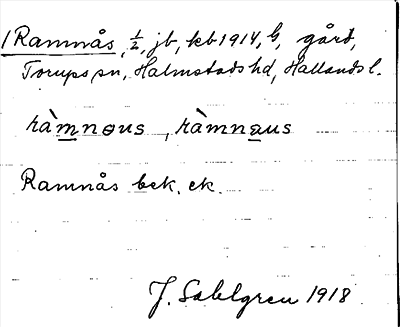 1 Ramnås, ½, jb, kb 1914, G, gård,
Torups sn, Halmstads hd, Hallands l.
ràmnɵus, ràmnaus
Ramnås bek. ek.
J. Sahlgren 1918